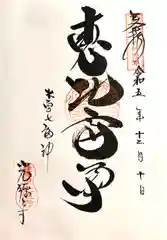 奉拝 令和五年十二月十日
恵比寿尊
木曽七福神
光徳寺